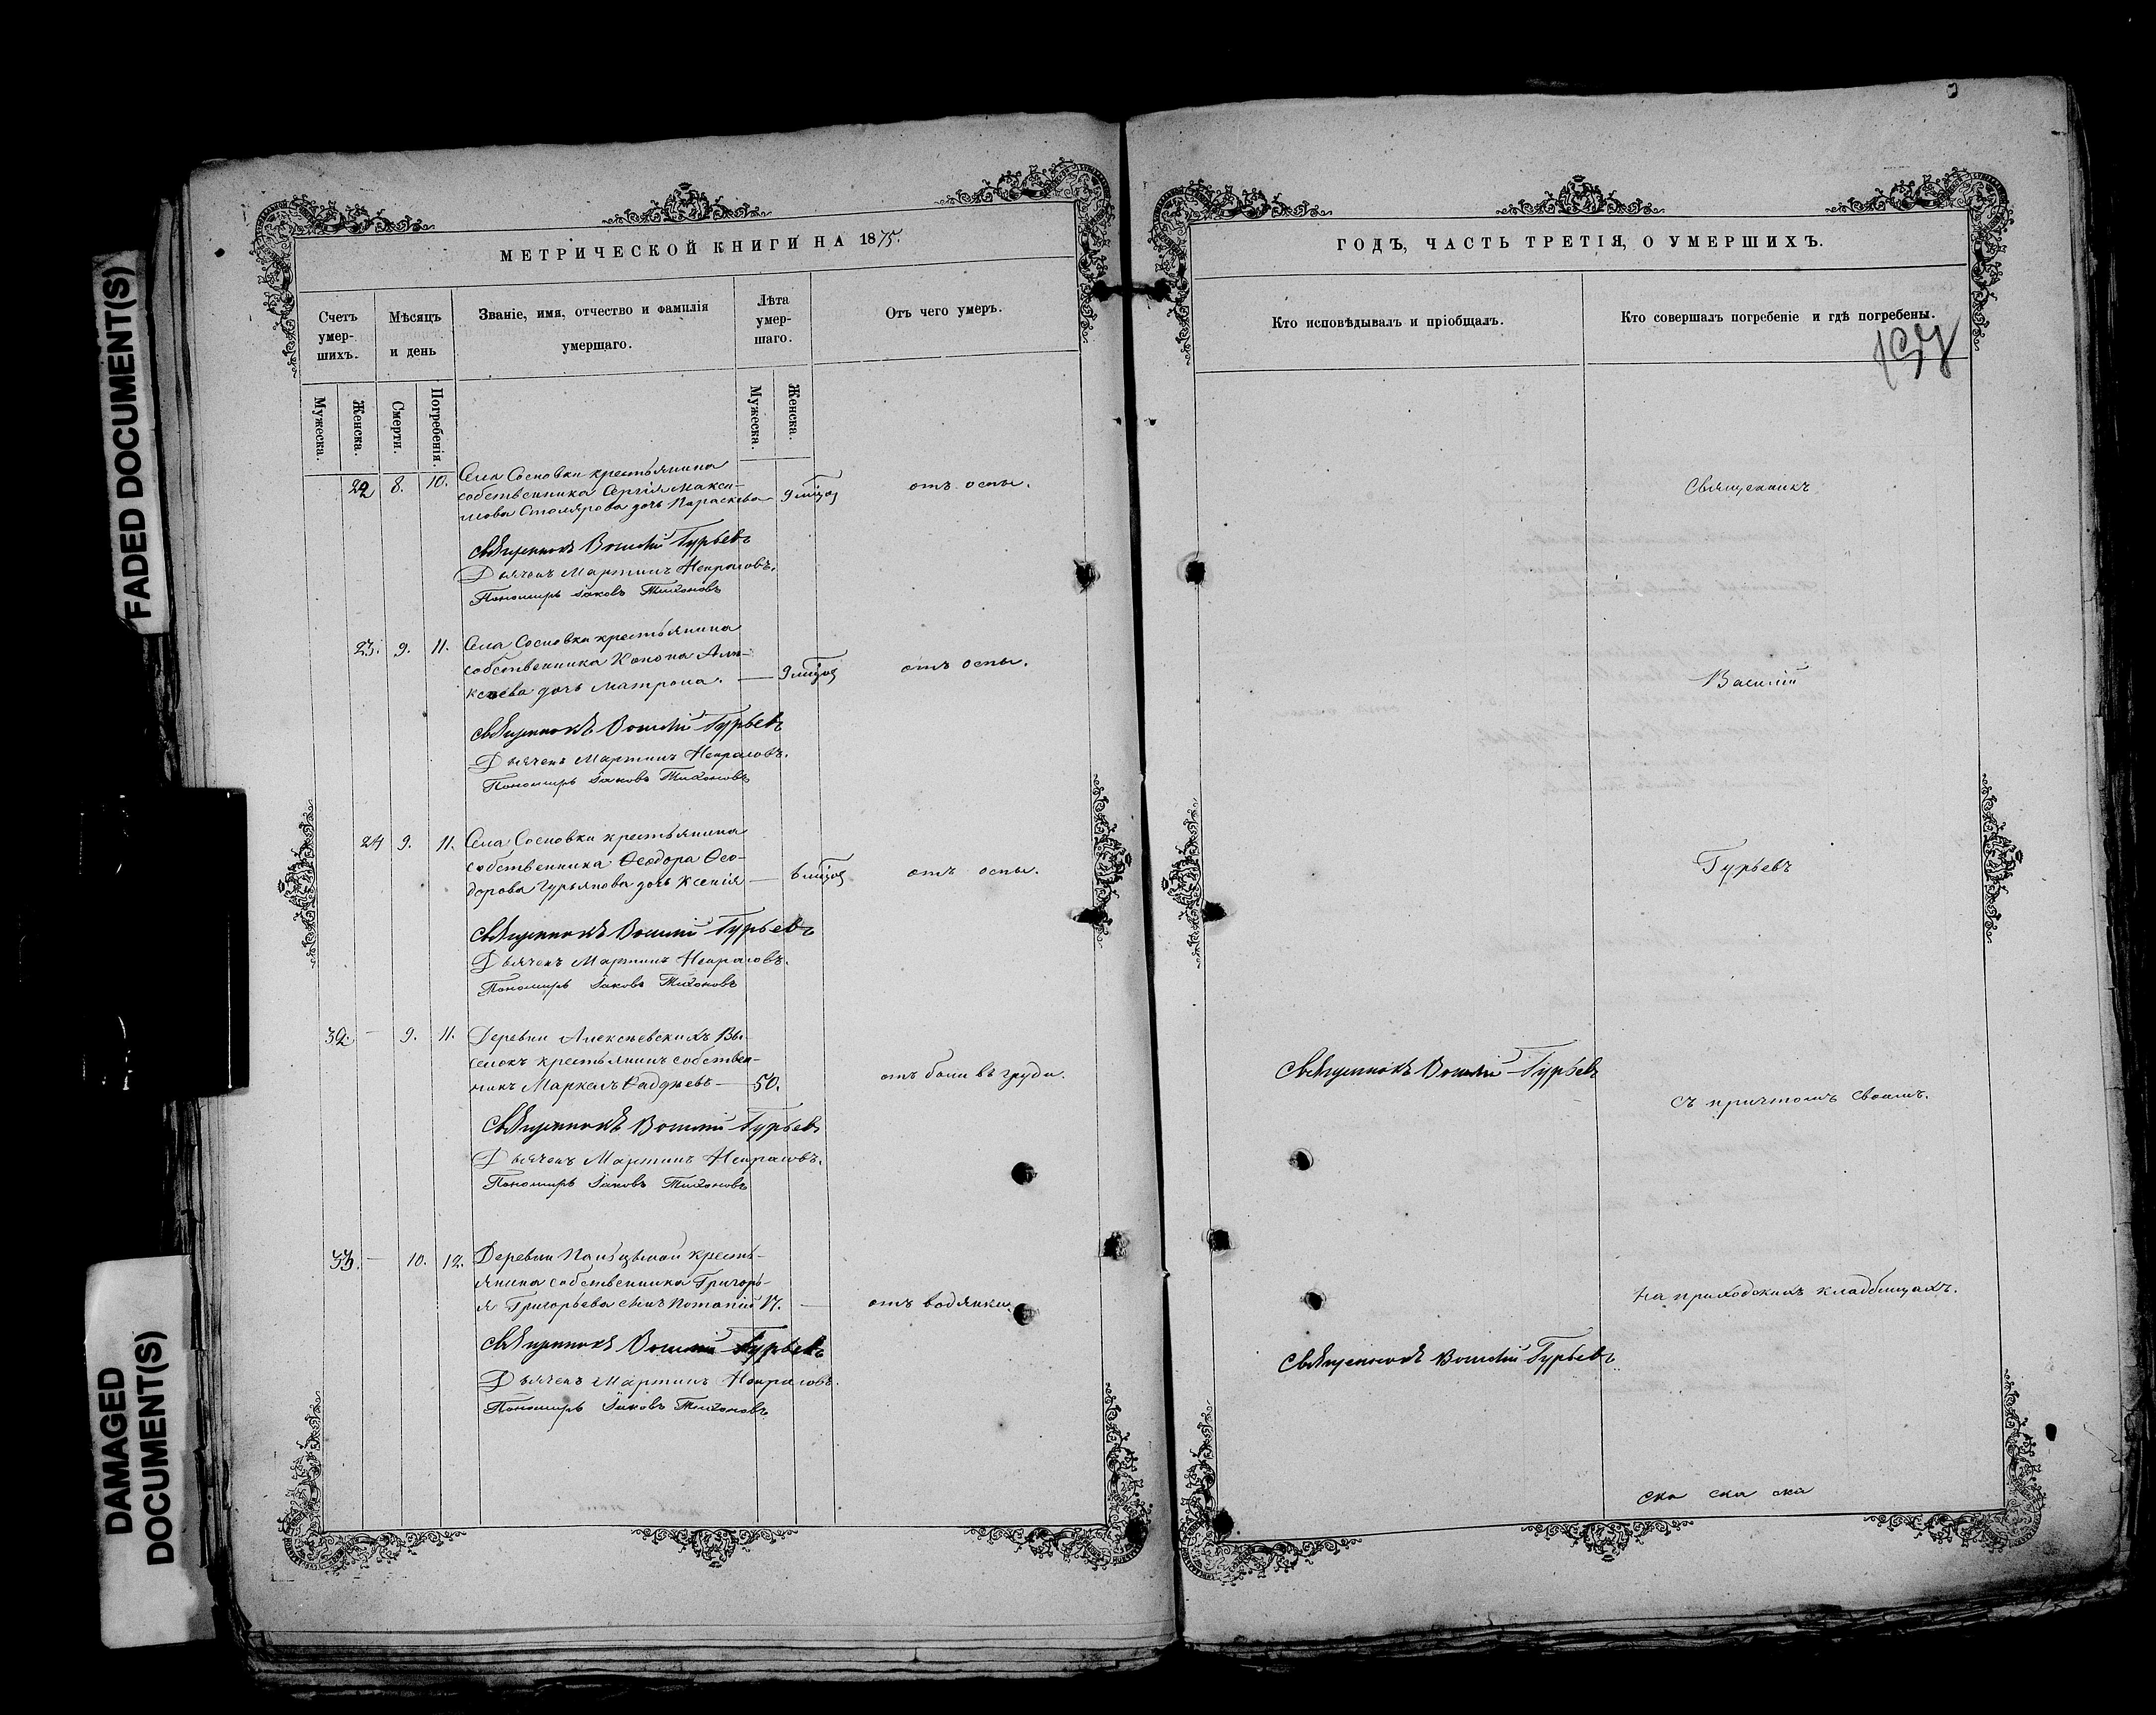 FADED DOCUMENT(S)
DAMAGED
DOCUMENT(S)
МЕТРИЧЕСКОЙ КНИГИ НА 1875.
Счетъ умер-шихъ.
Мѣсяцъ и день
Званіе, имя, отчество и фамилія умершаго.
Лѣта умер-шаго.
Отъ чего умеръ.
Мужеска.
Женска.
Смерти.
Погребенія.
Мужеска.
Женска.
22 8. 10. Села Сосновки крестьянина
собственника Сергія Макси-
мова Столярова дочь Параскева 9 отъ оспы.
Священникъ Василій Гурьевъ
Дьячекъ Мартинъ Некрасовъ.
Пономарь Іаковъ Тихоновъ
23. 9. 11. Села Сосновки крестьянина
собственника Конона Але-
ксѣева дочь Матрона. — 9 отъ оспы.
Священникъ Василій Гурьевъ
Дьячекъ Мартинъ Некрасовъ.
Пономарь Іаковъ Тихоновъ
24 9. 11. Села Сосновки крестьянина
собственника Ѳеодора Ѳео-
дорова Гурьянова дочь Ксенія — 6 отъ оспы.
Священникъ Василій Гурьевъ
Дьячекъ Мартинъ Некрасовъ.
Пономарь Іаковъ Тихоновъ
32. — 9. 11. Деревни Алексѣевскихъ Вы-
селокъ крестьянинъ собствен-
никъ Маркелъ Фаддѣевъ — 50. отъ боли въ груди.
Священникъ Василій Гурьевъ
Дьячекъ Мартинъ Некрасовъ.
Пономарь Іаковъ Тихоновъ
33. — 10. 12. Деревни кресть-
янина собственника Григорь-
я Григорьева сынъ Потапій 17. — отъ водянки.
Священникъ Василій Гурьевъ
Дьячекъ Мартинъ Некрасовъ.
Пономарь Іаковъ Тихоновъ
ГОДЪ, ЧАСТЬ ТРЕТІЯ, О УМЕРШИХЪ.
Кто исповѣдывалъ и пріобщалъ.
Кто совершалъ погребеніе и гдѣ погребены.
Священникъ
Василій
Гурьевъ
Священникъ Василій Гурьевъ
съ причтомъ своимъ.
на приходскихъ кладбищахъ.
Священникъ Василій Гурьевъ